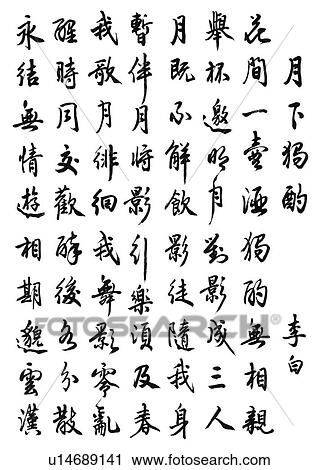 月下獨酌 李白
花間一壺酒獨酌無相親
舉杯邀明月對影成三人
月既不解飲影徒隨我身
暫伴月將影行樂須及春
我歌月徘徊我舞影零亂
醒時同交歡醉後各分散
永結無情遊相期邈雲漢
FOTOSEARCH
u14689141 www.fotosearch.com